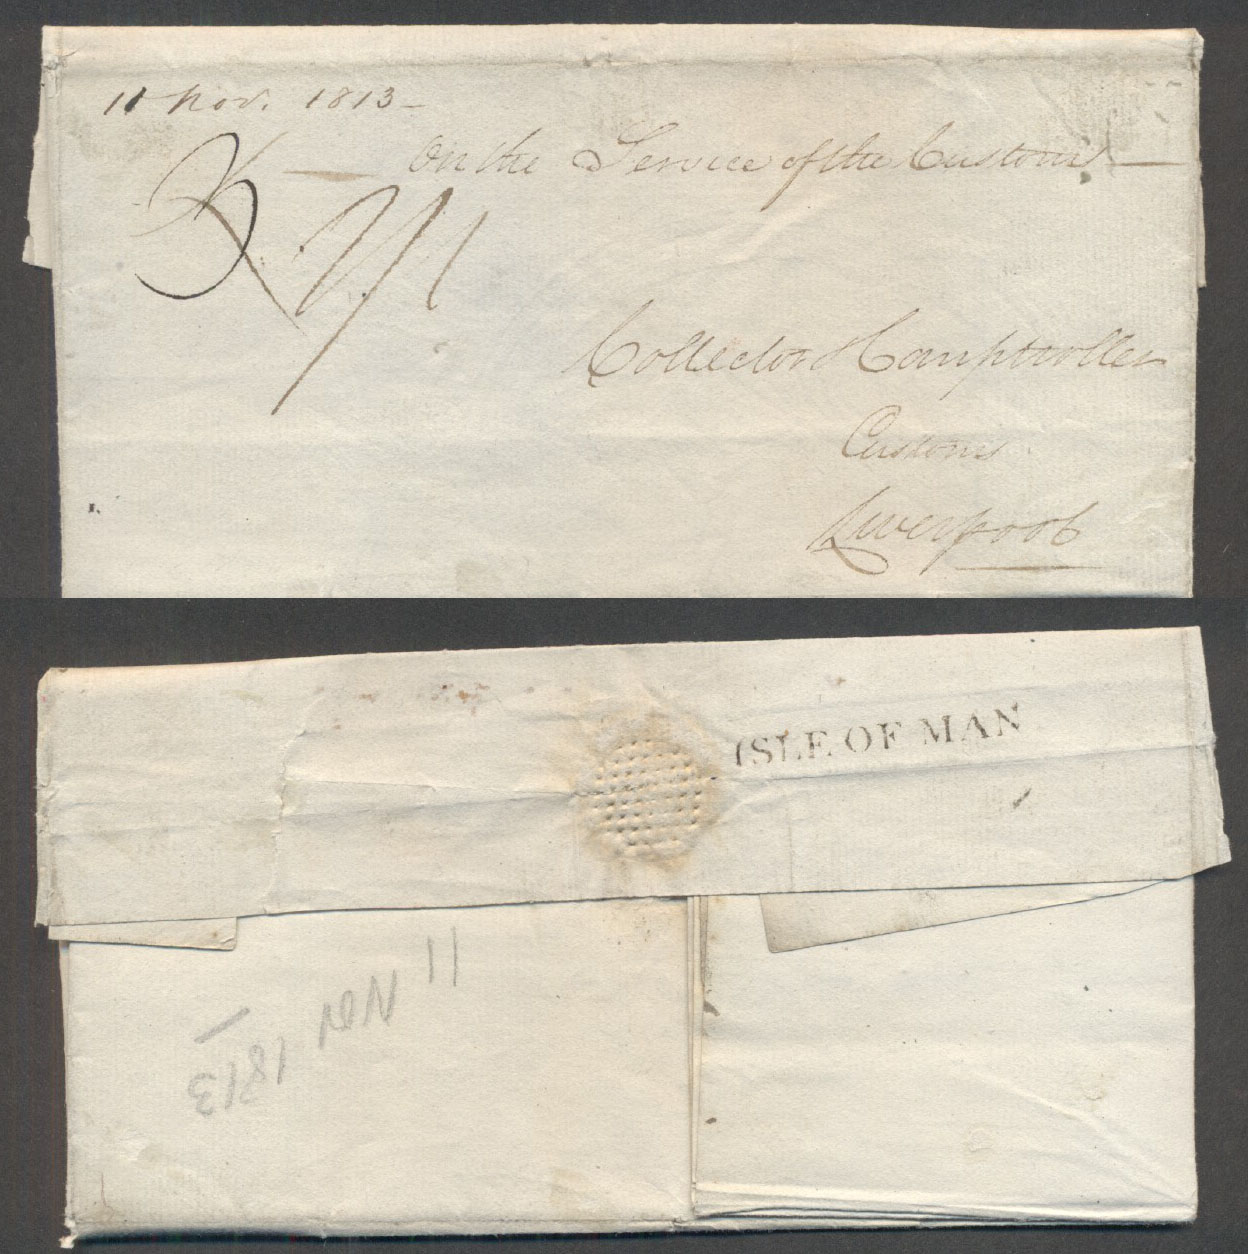 11 Nov. 1813 -
On the Service of the Customs
3
2/1
Collector & Comptroller
Customs
Liverpool
ISLE OF MAN
11 Nov 1813